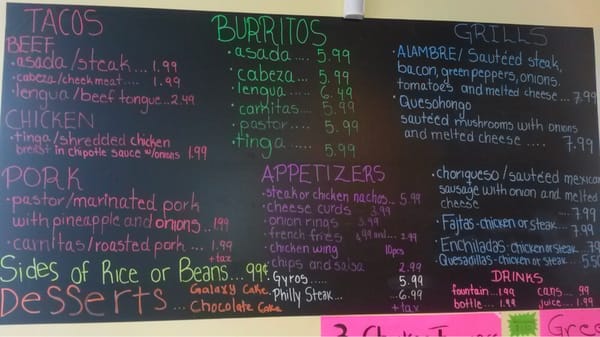 TACOS
BEEF
• asada/steak... 1.99
• cabeza/cheek meat.... 1.99
• lengua/beef tongue... 2.49
CHICKEN
• tinga/shredded chicken
breast in chipotle sauce w/onions 1.99
PORK
• pastor/marinated pork
with pineapple and onions.. 1.99
• carnitas/roasted pork... 1.99
+tax
Sides of Rice or Beans...99¢
Desserts...
Galaxy Cake
Chocolate Cake
BURRITOS
• asada.... 5.99
• cabeza.... 5.99
• lengua.... 6.49
• carnitas.... 5.99
• pastor.... 5.99
• tinga.... 5.99
APPETIZERS
• steak or chicken nachos... 5.99
• cheese curds 3.99
• onion rings 3.99
• french fries and... 2.99
• chicken wing 10pcs
• chips and salsa 2.99
• Gyros..... 5.99
• Philly Steak.... 6.99
+tax
GRILLS
• ALAMBRE/ Sautéed steak,
bacon, green peppers, onions,
tomatoes and melted cheese... 7.99
• Quesohongo
sautéed mushrooms with onions
and melted cheese .... 7.99
• choriqueso/sautéed mexican
sausage with onion and melted
cheese
.... 7.99
• Fajitas-chicken or steak... 7.99
• Enchiladas-chicken or steak..
• Quesadillas-chicken or steak...
DRINKS
fountain.. 1.99 cans... .99
bottle... 1.99 juice... 1.99
Gree